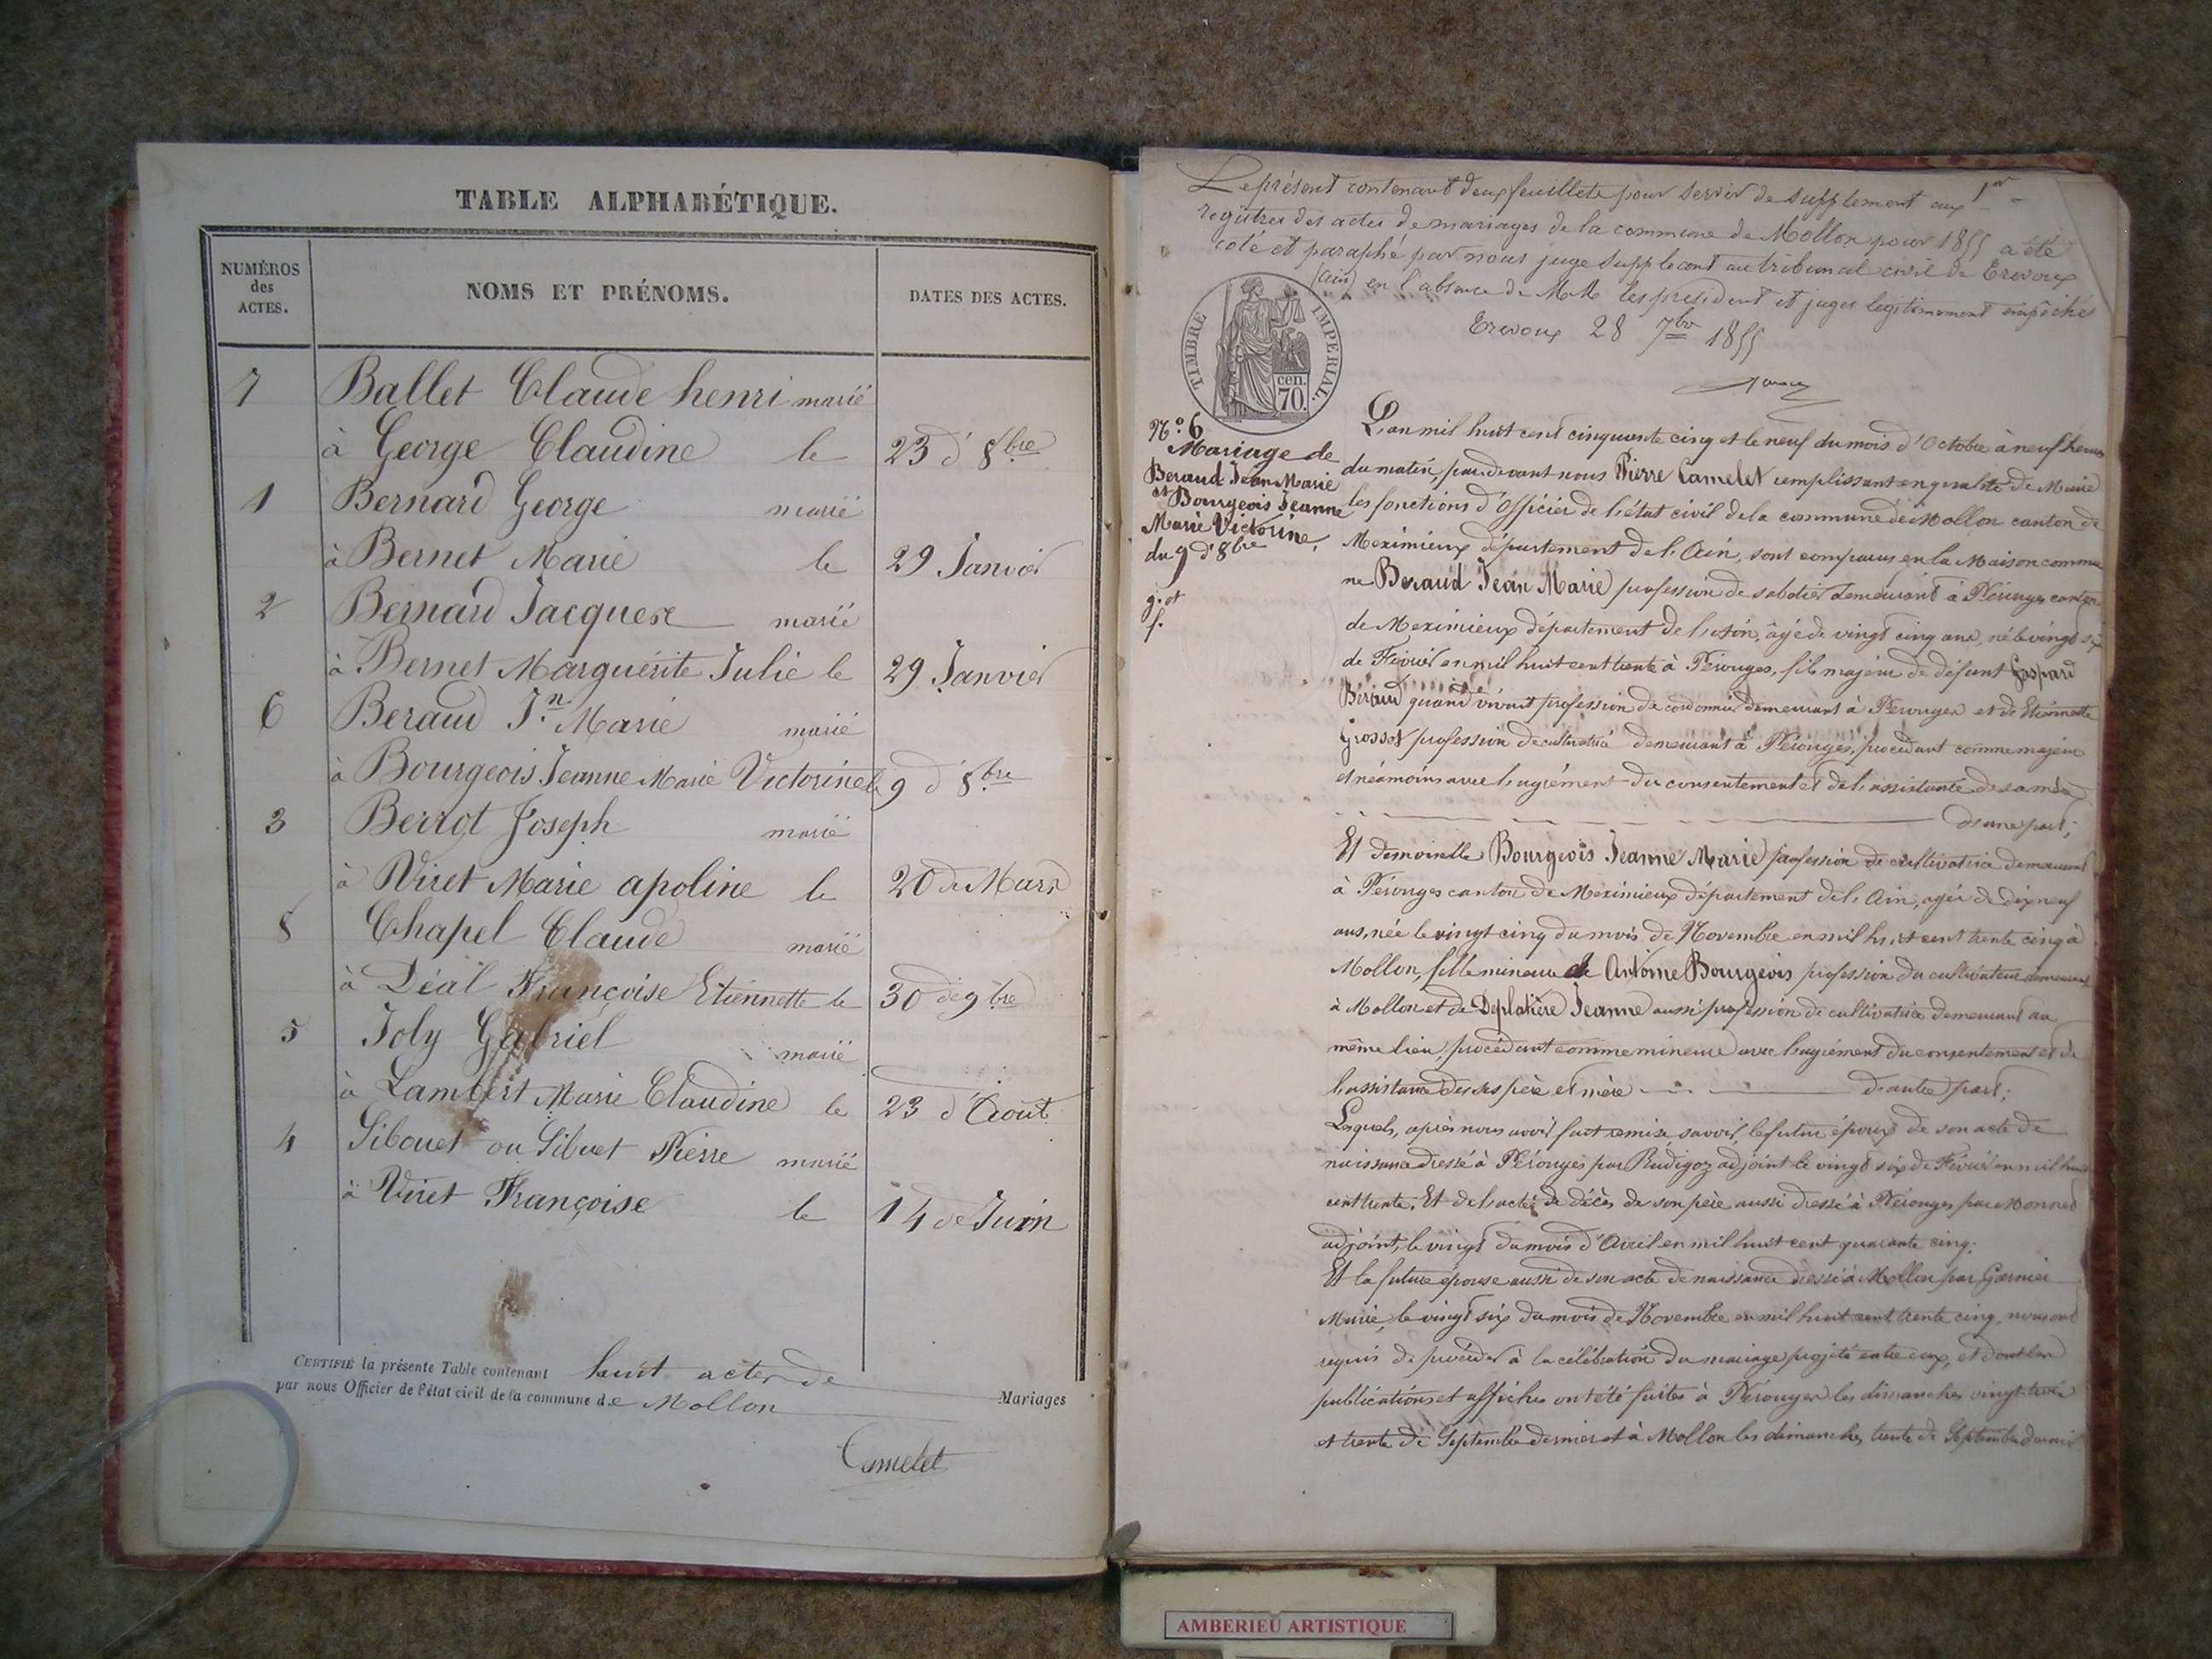 TABLE ALPHABÉTIQUE.
NUMÉROS des ACTES. NOMS ET PRÉNOMS. DATES DES ACTES.
7 Ballet Claude henri marié
à George Claudine le 23 d' 8bre
1 Bernard George marié
à Bernet Marie le 29 Janvier
2 Bernard Jacques marié
à Bernet Marguérite Julie le 29 Janvier
6 Beraud Jn. Marie marié
à Bourgeois Jeanne Marie Victorine le 9 d' 8bre
3 Berrot Joseph marié
à Viret Marie apoline le 20 de Mars
8 Chapel Claude marié
à Déal Françoise Etiennette le 30 de 9bre
5 Joly Gabriel marié
à Lambert Marie Claudine le 23 d'Août
4 Sibouet ou Sibuet Pierre marié
à Viret Françoise le 14 de Juin
CERTIFIÉ la présente Table contenant huit actes de Mariages
par nous Officier de l'état civil de la commune de Mollon
Camelet
Le présent contenant deux feuillets pour servir de supplement aux 1er
registres des actes de mariages de la commune de Mollon pour 1855 a été
coté et paraphé par nous juge suppleant au tribunal civil de Trevoux
(Ain) en l'absence de MM les president et juges legitimement empêchés
Trevoux 28 7bre 1855
TIMBRE IMPERIAL.
cen.
70.
N.o 6
Mariage de
Beraud Jean Marie
et Bourgeois Jeanne
Marie Victorine,
du 9 d' 8bre
g. et
f.
L'an mil huit cent cinquante cinq et le neuf du mois d'Octobre à neuf heures
du matin, par devant nous Pierre Camelet remplissant en qualité de Maire
les fonctions d'Officier de l'état civil de la commune de Mollon canton de
Meximieux département de l'Ain, sont comparus en la Maison commu
ne Beraud Jean Marie profession de sabotier demeurant à Pérouges canton
de Meximieux département de l'Ain, âgé de vingt cinq ans, né le vingt six
de Février en mil huit cent trente à Pérouges, fils majeur de défunt Gaspard
Béraud quand vivait profession de cordonnier demeurant à Pérouges et de Etiennette
Grosset profession de cultivatrice demeurant à Pérouges, procédant comme majeur
et néamoins avec l'agrément du consentement et de l'assistante de sa mère
d'une part;
Et demoiselle Bourgeois Jeanne Marie profession de cultivatrice demeurant
à Pérouges canton de Meximieux département de l'Ain, agée de dix neuf
ans, née le vingt cinq du mois de Novembre en mil huit cent trente cinq à
Mollon, fille mineure de Antoine Bourgeois profession de cultivateur demeurant
à Mollon et de Deplatière Jeanne aussi profession de cultivatrice demeurant au
même lieu, procédant comme mineure avec l'agrément du consentement et de
l'assistance de ses père et mère d'autre part;
Lesquels, après nous avoir fait remise savoir, le futur époux de son acte de
naissance dressé à Pérouges par Rudigoz adjoint le vingt six de Février en mil huit
cent trente. Et de l'acte de décès de son père aussi dressé à Pérouges par Monnet
adjoint, le vingt du mois d'Avril en mil huit cent quarante cinq;
Et la future épouse aussi de son acte de naissance dressé à Mollon par Garnier
Maire, le vingt six du mois de Novembre en mil huit cent trente cinq, nous ont
requis de procéder à la célébration du mariage projeté entre eux, et dont les
publications et affiches ont été faites à Pérouges les dimanches vingt trois
et trente de Septembre dernier et à Mollon les dimanches trente de Septembre dernier
AMBERIEU ARTISTIQUE